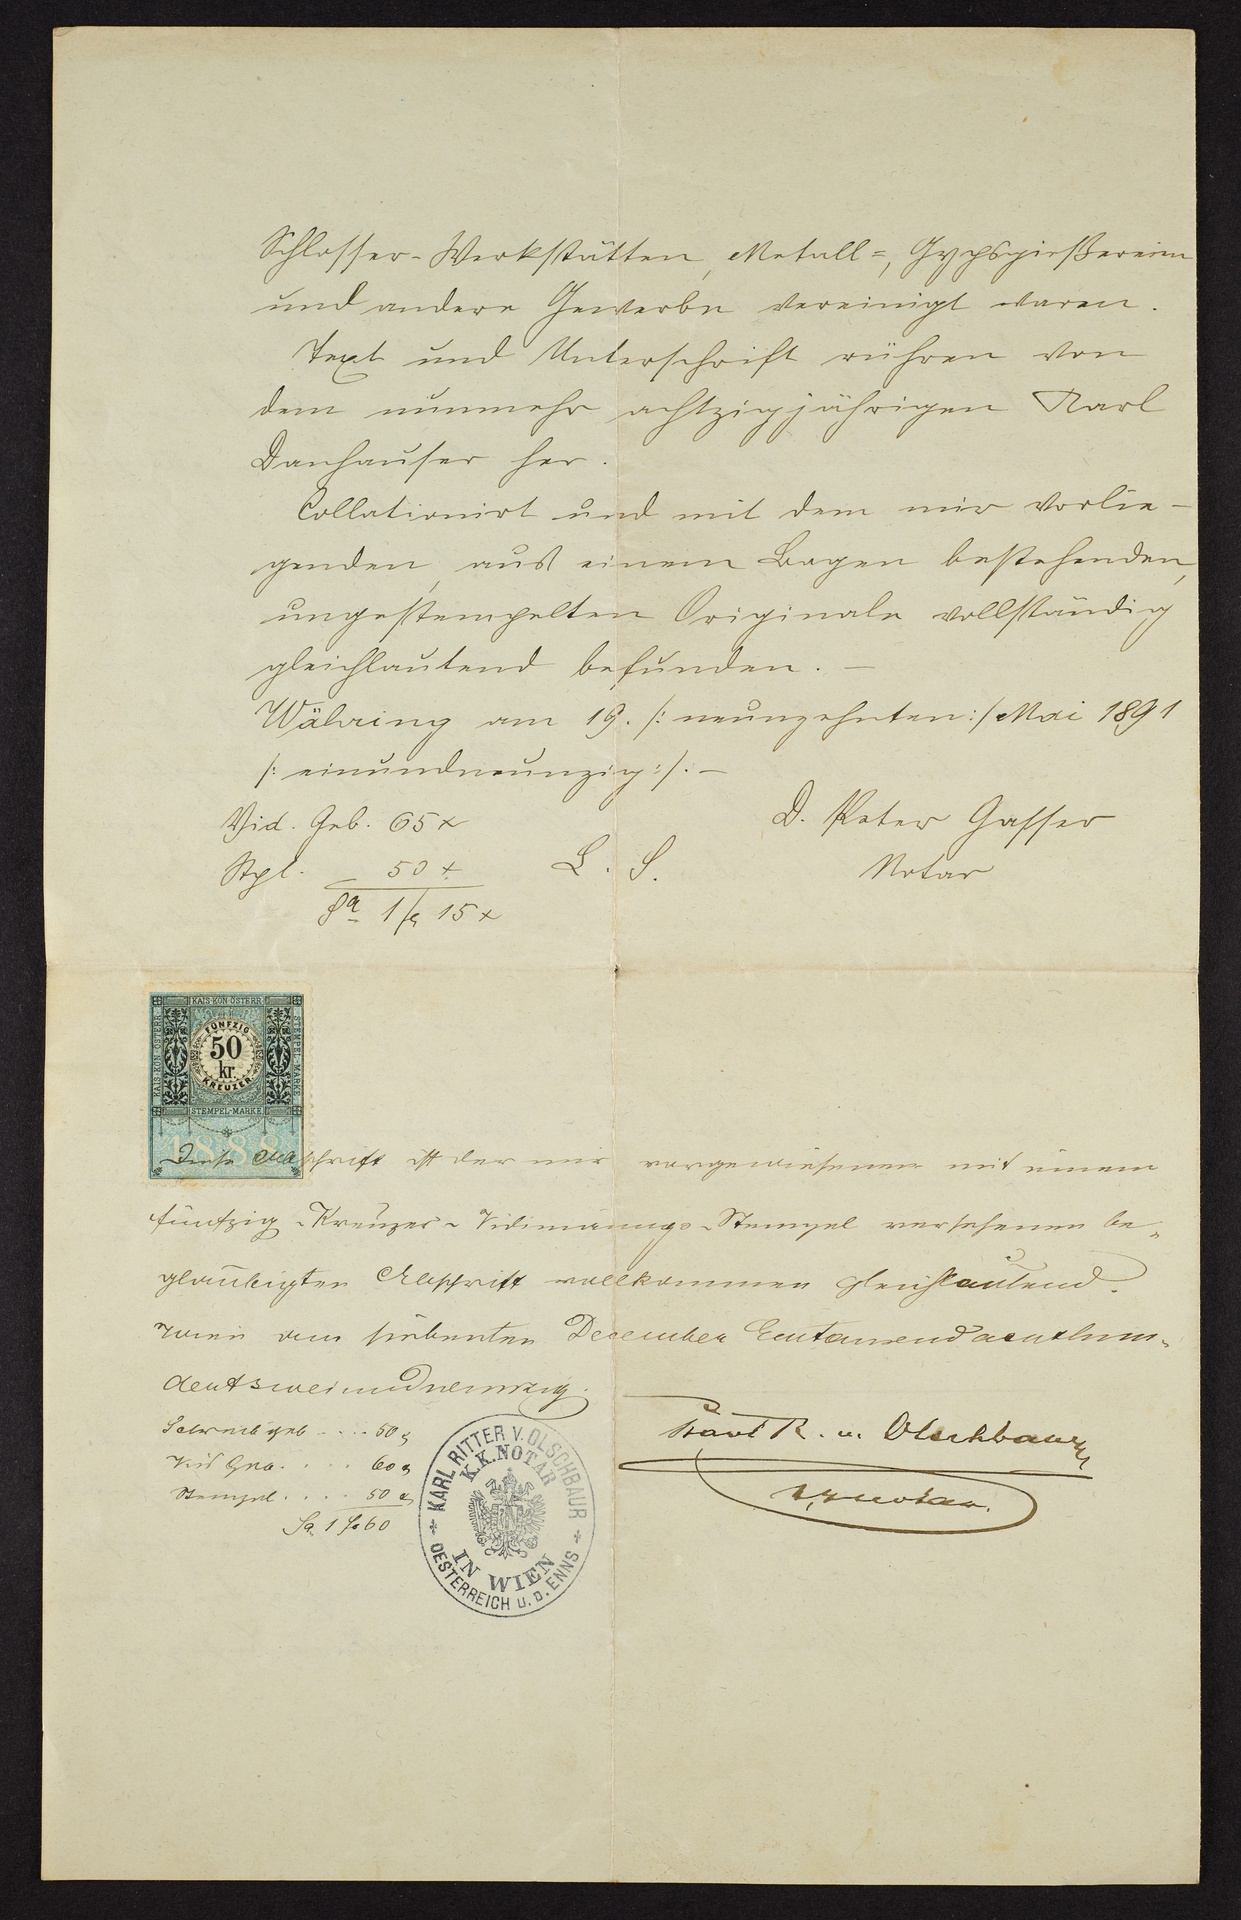 Schlosser-Werkstätten, Metall=, Gypsgießereien
und andere Gewerbe vereinigt waren.
Text und Unterschrift rühren von
dem nunmehr achtzigjährigen Karl
Danhauser her.
Collationirt und mit dem mir vorlie-
genden, aus einem Bogen bestehenden,
ungestempelten Originale vollständig
gleichlautend befunden. –
Währing am 19. /: neunzehnten :/ Mai 1891
/: einundneunzig :/. –
Vid. Geb. 65 x
D. Peter Gasser
Stpl. 50 x
L. S.
Notar
Sa 1 fl 15 x
KAIS. KÖN. ÖSTERR.
KAIS. KÖN. ÖSTERR.
STEMPEL-MARKE
FÜNFZIG
50
kr.
KREUZER
STEMPEL-MARKE
1888
Diese Abschrift ist der mir vorgewiesenen mit einem
fünfzig-Kreuzer-Vidimirungs-Stempel versehenen be-
glaubigten Abschrift vollkommen gleichlautend.
Wien am siebenten December Eintausendachthun-
dertzweiundneunzig.
Schreibgeb .... 50
Vid Geb. .... 60
Stempel .... 50
Sa 1 fl 60
Karl R. v. Olschbaur
k. k. Notar.
KARL RITTER V. OLSCHBAUR
K.K. NOTAR
IN WIEN
OESTERREICH U. D. ENNS